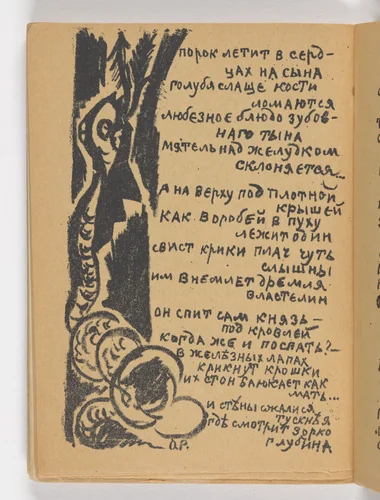 порок летит в серд-
цах на сына
голубя слаще кости
ломаются
любезное блюдо зубов-
наго тына
мятель над желудком
склоняется...
А на верху под плотной
крышей
как воробей в пуху
лежит один
свист крики плач чуть
слышны
им внемлет дремля
властелин
он спит сам князь —
под кровлей
когда же и поспать?—
в желѣзных лапах
крикнут крошки
их стон баюкает как
мать...
и стѣны сжалися
тускнѣя
гдѣ смотрит зорко
глубина
О.Р.